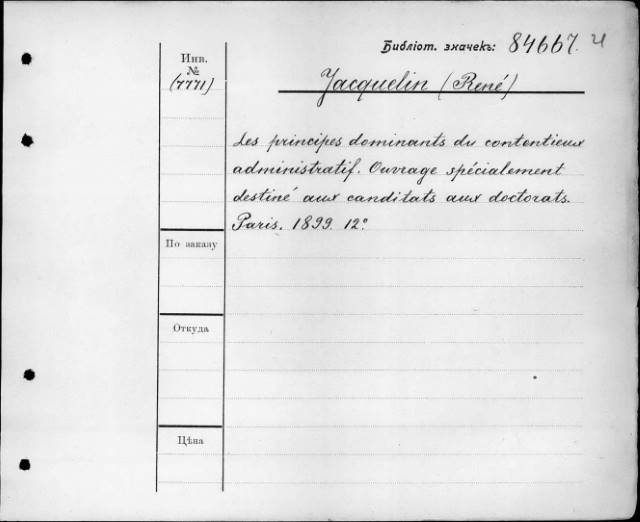 Библіот. значекъ: 84667. и
Инв.
№
(7771)
Jacquelin (René)
Les principes dominants du contentieux
administratif. Ouvrage spécialement
destiné aux canditats aux doctorats.
Paris. 1899. 12º
По заказу
Откуда
Цѣна